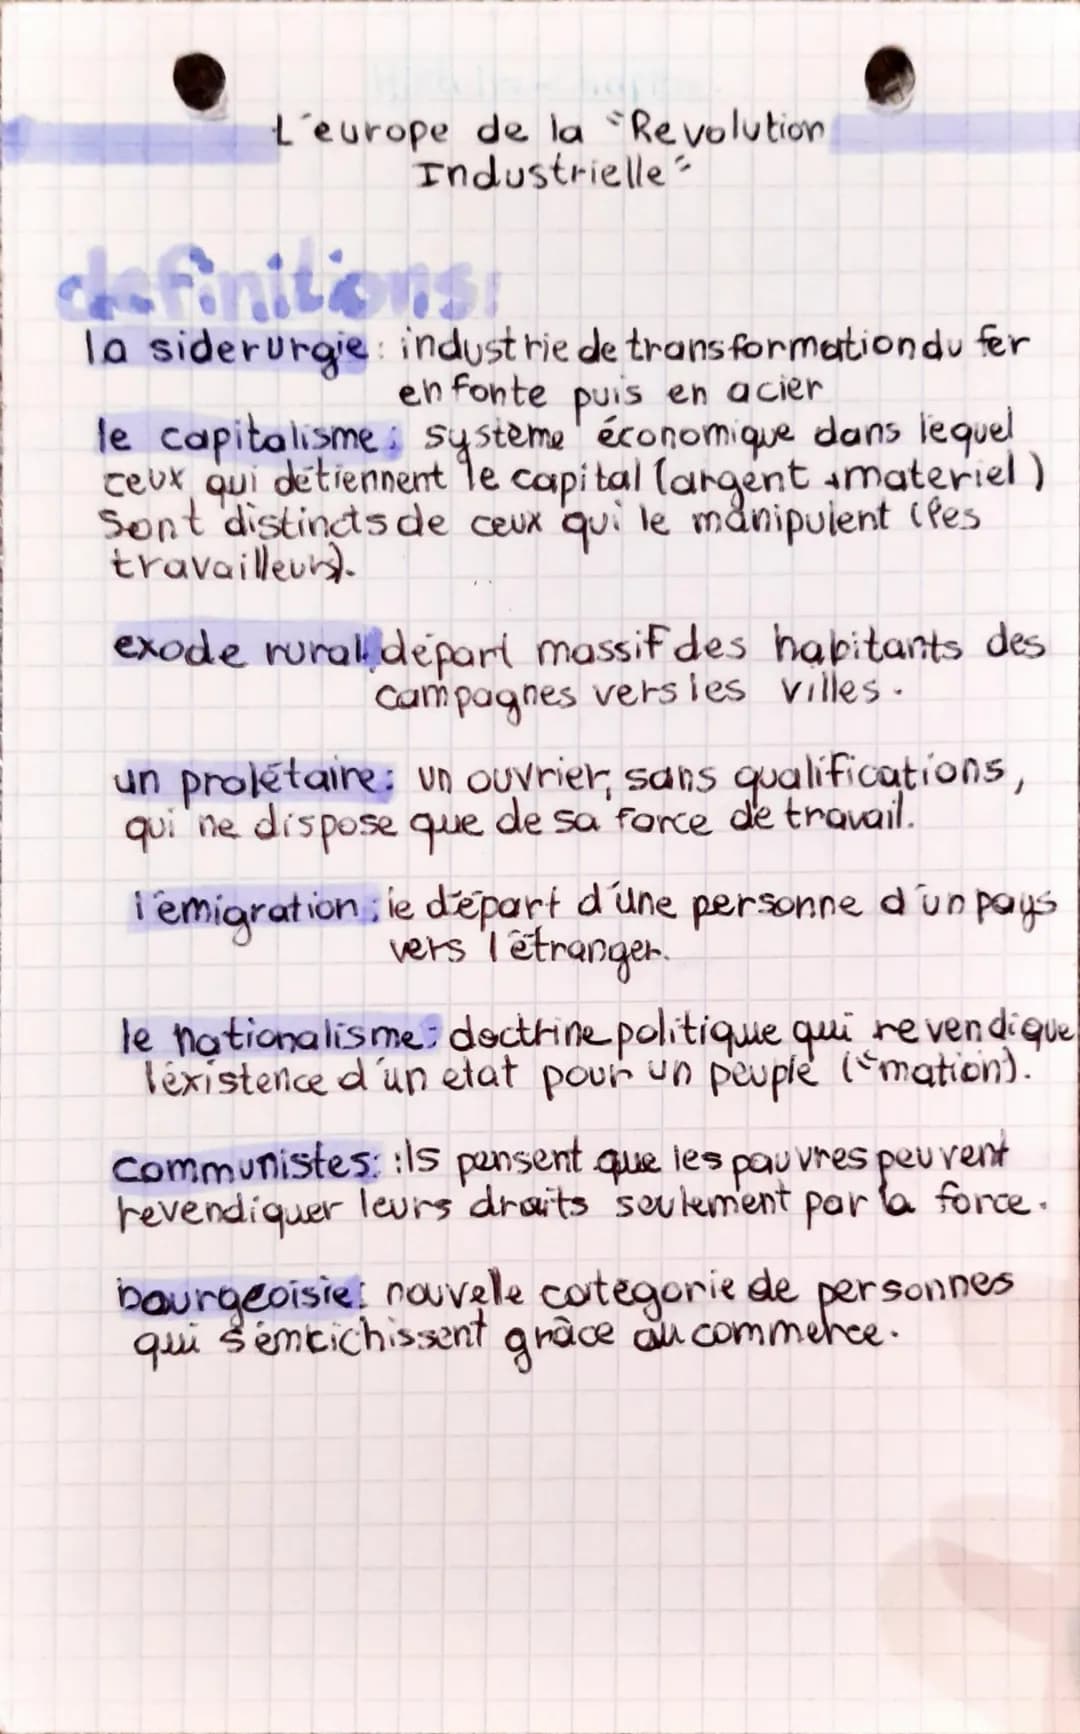 L'europe de la "Revolution
Industrielle"
definitions:
la siderurgie : industrie de transformation du fer
en fonte puis en acier
le capitalisme : système économique dans lequel
ceux qui détiennent le capital (argent + materiel)
sont distincts de ceux qui le manipulent (les
travailleurs).
exode rural : départ massif des habitants des
campagnes vers les villes.
un prolétaire : un ouvrier, sans qualifications,
qui ne dispose que de sa force de travail.
l'émigration : le départ d'une personne d'un pays
vers l'étranger.
le nationalisme : doctrine politique qui revendique
l'éxistence d'un etat pour un peuple ("mation).
communistes : ils pensent que les pauvres peuvent
revendiquer leurs droits seulement par la force.
bourgeoisie : nouvelle catégorie de personnes
qui s'enrichissent grâce au commerce.